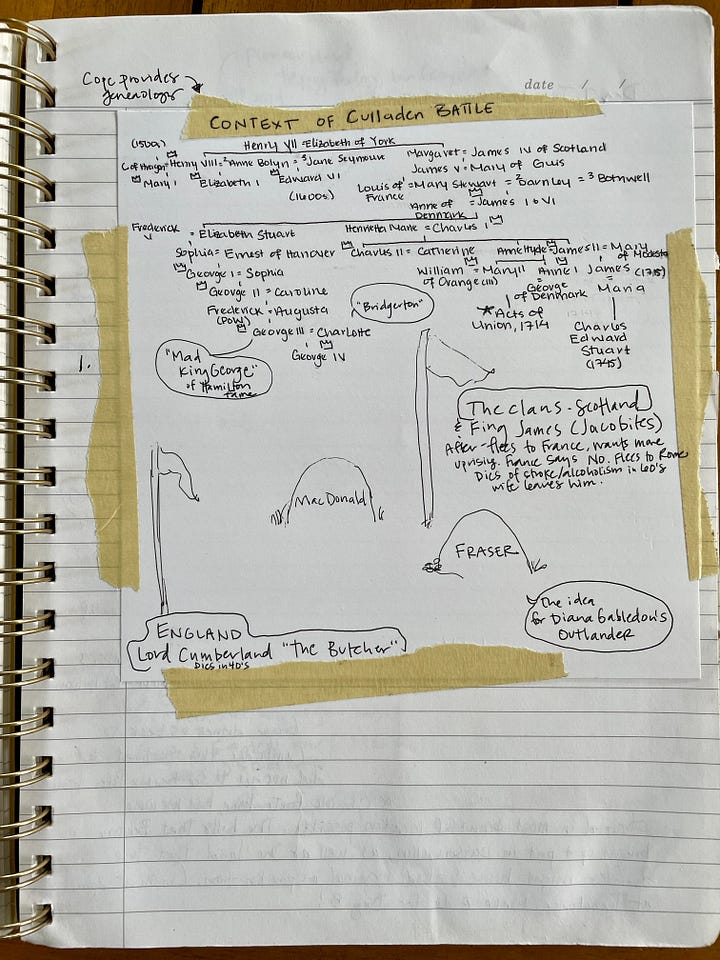 Cope provides
geneaology
date / /
CONTEXT OF CULLADEN BATTLE
(1500s)
Henry VII = Elizabeth of York
C of Aragon = Henry VIII = ²Anne Bolyn = ³Jane Seymour
Margaret = James IV of Scotland
Mary I Elizabeth I Edward VI
James V = Mary of Guis
(1600s)
Louis of France = Mary Stewart = ²Darnley = ³Bothwell
Anne of Denmark = James I & VI
Frederick V = Elizabeth Stuart
Henrietta Marie = Charles I
Sophia = Ernest of Hanover
Charles II = Catherine
Anne Hyde = James II = Mary of Modesta
George I = Sophia
William of Orange (III) = Mary II
Anne I = George of Denmark
James (1715) = Maria
George II = Caroline
Frederick (POW) = Augusta
"Bridgerton"
*Acts of
Union, 1714
George III = Charlotte
George IV
Charles
Edward
Stuart
(1745)
1.
"Mad
King George"
of Hamilton
fame
The clans - Scotland
& King James (Jacobites)
After - flees to France, wants more
uprising. France says No. Flees to Rome
Dies of stroke/alcoholism in 60's
wife leaves him.
MacDonald
FRASER
The idea
for Diana Gabledon's
Outlander
ENGLAND
Lord Cumberland "The Butcher"
Dies in 40's